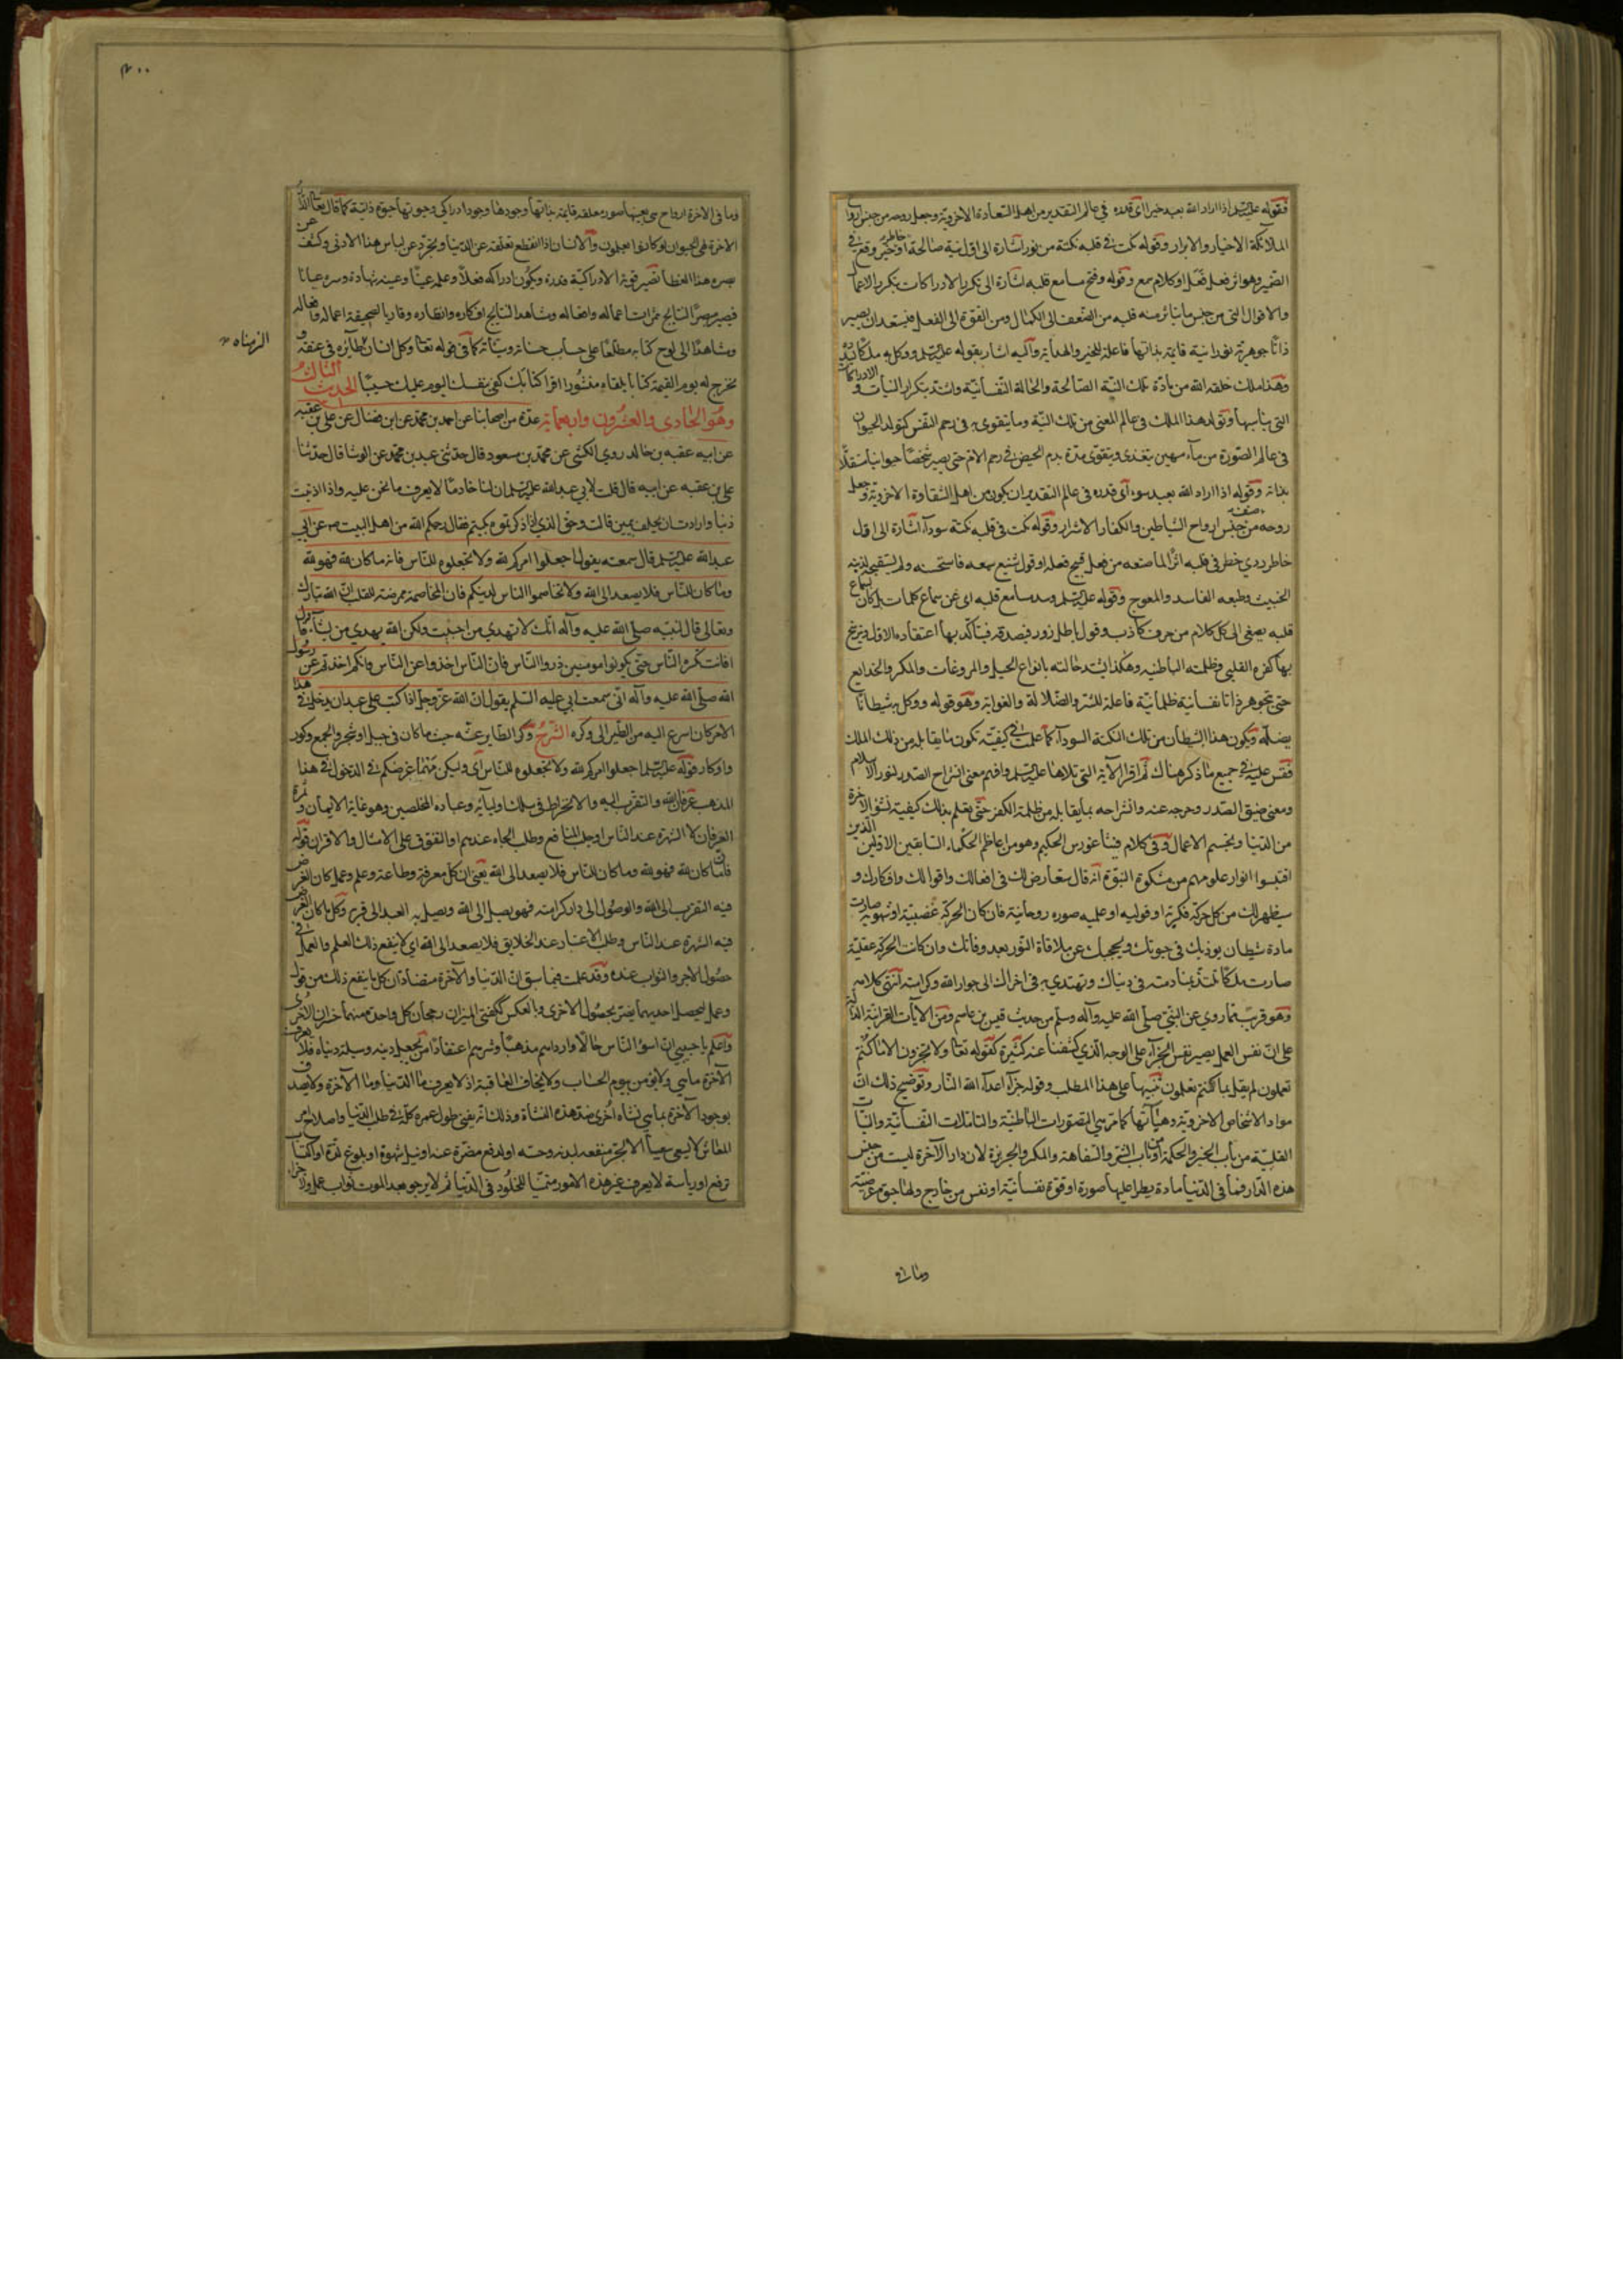 فقوله عليه السلم اذا اراد الله بعبد خيرا اى قدره فى عالم التقدير من اهل السعادة الاخروية وجعل روحه من جنس ارواح
الملائكة الاخيار والابرار وقوله نكت فى قلبه نكتة من نور اشارة الى اول نية صالحة او خاطر خير وقع فى
الضمير وهو اثر فعل فعله او كلام سمع وقوله وفتح مسامع قلبه اشارة الى تكرر الادراكات بتكرر الاعمال
والاقوال التى من جنس ما يتاثر منه قلبه من الضعف الى الكمال ومن القوة الى الفعل فيستعد ان يصير
ذاتا جوهرية نورانية قائمة بذاتها فاعلة للخير والهداية واليه اشار بقوله عليه السلم ووكل به ملكا يسدده
وهذا ملك خلقه الله من مادة تلك النية الصالحة والحالة النفسانية واشتد بتكرار النيات و الادراكات
التى يناسبها وتولد هذا الملك فى عالم المعنى من تلك النية وما يتقوى به فى رحم النفس كتولد الحيوان
فى عالم الصورة من ماء مهين يتغذى ويتقوى مدة بدم الحيض فى رحم الام حتى يصير شخصا حيوانيا مستقلا
بذاته وقوله اذا اراد الله بعبد سوءا اى قدره فى عالم التقدير ان يكون من اهل الشقاوة الاخروية وجعل
روحه من جنس صنف ارواح الشياطين والكفار الاشرار وقوله نكت فى قلبه نكتة سوداء اشارة الى اول
خاطر ردي خطر فى قلبه اثر لما صنعه من فعل قبيح فعله او قول شنيع سمعه فاستحسنه ولم يستقبحه لذاته
الخبيث وطبعه الفاسد والمعوج وقوله عليه السلم وسد مسامع قلبه اى عن سماع كلمات بل كان
قلبه يصغى الى كل كلام مزحرف كاذب وقول باطل زور فيصدقه فيتاكد بها اعتقاده الاول ويترشح
بها كفره القلبى وظلمته الباطنية وهكذا يشتد حالته بانواع الحيل والمروغات والمكر والخدايع
حتى تجوهر ذاتا نفسانية ظلمانية فاعلة للشر والضلالة والغواية وهو قوله ووكل به شيطانا
يضله ويكون هذا الشيطان من تلك النكتة السوداء كما علمت فى كيفية تكون ما يقابله من ذلك الملك
فقس عليه فى جميع ما ذكر هناك ثم اقرا الآية التى تلاها عليه السلم وافهم معنى انشراح الصدر لنور الاسلام
ومعنى ضيق الصدر وحرجه عنه وانشراحه بما يقابله من ظلمة الكفر حتى يعلم بذلك كيفية نشو الآخرة
من الدنيا وتجسم الاعمال وفى كلام فيثاغورس الحكيم وهو من اعاظم الحكماء السابقين الاولين الذين
اقتبسوا انوار علومهم من مشكوة النبوة انه قال ستعارض لك فى افعالك واقوالك وافكارك و
سيظهر لك من كل حركة فكرية او قولية او عملية صورة روحانية فان كان الحركة غضبية او شهوية صارت
مادة شيطان يوذيك فى حيوتك ويحجبك عن ملاقاة النور بعد وفاتك وان كانت الحركة عقلية
صارت ملكا تلتذ بمنادمته فى دنياك وتهتدي به فى اخراك الى جوار الله وكرامته انتهى كلامه
وهو قريب مما روي عن النبى صلى الله عليه وآله وسلم من حديث قيس بن عاصم ومن الآيات القرانية الدالة
على ان نفس العمل يصير نفس الجزآء على الوجه الذي كشفنا عنه كثيرة كقوله تعا ولا تجزون الا ما كنتم
تعملون لم يقل بما كنتم تعملون تنبيها على هذا المطلب وقوله جزآء اعدآء الله النار وتوضيح ذلك ان
مواد الاشخاص الاخروية وهيآتها كما مر هي التصورات الباطنية والتاملات النفسانية والنيات
القلبية من باب الخير والحكمة او من باب الشر والسفاهة والمكر والجربزة لان دار الآخرة ليست من جنس
هذه الدار فما فى الدنيا مادة يطرا عليها صورة او قوة نفسانية او نفس من خارج ولها حيوة عرضية
وما فى
٤٠٠
وما فى الاخرة ارواح هى بعينها صورة معلقة قايمة بذاتها وجودها وجود ادراكي وحيوتها حيوة ذاتية كما قال تعا ان الدار
الاخرة لهى الحيوان لو كانوا يعلمون والانسان اذا انقطع تعلقه عن الدنيا وتجرد عن لباس هذا الادنى وكشف عن
بصره هذا الغطا تصير قوته الادراكية قدرة ويكون ادراكه فعلا وعلمه عينا وغيبه شهادة وسره عيانا
فيصير مبصرا لنتايج ثمرات اعماله وافعاله ومشاهدا لنتايج افكاره وانظاره وقاريا لصحيفة اعماله وافعاله
ومشاهدا الى لوح كتابه مطلعا على حساب حسناته وسيئاته كما فى قوله تعا وكل انسان طايره فى عنقه و
نخرج له يوم القيمة كتابا يلقاه منشورا اقرا كتابك كفى بنفسك اليوم عليك حسيبا الحديث الثالث
وهو الحادي والعشرون واربعمائة عدة من اصحابنا عن احمد بن محمد عن ابن فضال عن على بن عقبه
عن ابيه عقبه بن خالد روى الكشى عن محمد بن مسعود قال حدثنى عبد بن محمد عن الوشا قال حدثنا
على بن عقبه عن ابيه قال قلت لابي عبد الله عليه السلم ان لنا خادما لا يعرف ما نحن عليه واذا اذنبت
ذنبا وارادت ان يحلف بيمين قالت وحق الذي اذا ذكرتموه بكيتم فقال رحمكم الله من اهل البيت عن ابي
عبد الله عليه السلم قال سمعته يقول اجعلوا امركم لله ولا تجعلوه للناس فانه ما كان لله فهو لله
وما كان للناس فلا يصعد الى الله ولا تخاصموا الناس لدينكم فان المخاصمة ممرضة للقلب ان الله تبارك
وتعالى قال لنبيه صلى الله عليه وآله انك لا تهدي من احببت ولكن الله يهدي من يشاء وقال
افانت تكره الناس حتى يكونوا مومنين ذروا الناس فان الناس اخذوا عن الناس وانكم اخذتم عن رسول
الله صلى الله عليه وآله انى سمعت ابى عليه السلم يقول ان الله عز وجل اذا كتب على عبد ان يدخل فى هذا
الامر كان اسرع اليه من الطير الى وكره الشرح وكر الطاير عشه حيث ما كان فى جبل او شجر والجمع وكور
واوكار قوله عليه السلم اجعلوا امركم لله ولا تجعلوه للناس اى وليكن غرضكم فى الدخول فى هذا
المذهب عرفان الله والتقرب اليه والانخراط فى سلك اوليآئه وعباده المخلصين وهو غاية الايمان و ثمرة
العرفان لا الشهرة عند الناس او جلب المنافع وطلب الجاه عندهم او التفوق على الامثال والاقران قوله
فانه ما كان لله فهو لله وما كان للناس فلا يصعد الى الله يعنى ان كل معرفة وطاعة وعلم وعمل كان الغرض
فيه التقرب الى الله والوصول الى دار كرامته فهو يصل الى الله ويصل به العبد الى قربه وكل ما كان الغرض
فيه الشهرة عند الناس وطلب الاعتبار عند الخلايق فلا يصعد الى الله اى لا ينفع ذلك العلم والعمل فى
حصول الاجر والثواب عنده وقد علمت فيما سبق ان الدنيا والآخرة متضادتان كل ما ينفع ذلك من قول
وعمل لتحصيل احديهما يضر بحصول الاخرى وبالعكس ككفتى الميزان رجحان كل واحدة منهما خسران الاخرى
واعلم يا حبيبي ان اسوء الناس حالا وارداهم مذهبا وشرهم اعتقادا من يجعل دينه وسيلة دنياه فلا يعرف
الآخرة ما هي ولا يؤمن بيوم الحساب ولا يخاف العاقبة اذ لا يعرف ما الدنيا وما الآخرة ولا يصدق
بوجود الآخرة بما هي نشاه اخرى ضد هذه النشاة وذلك انه يفنى طول عمره كله فى طلب الدنيا واصلاح امر
المعاش لا يسعى سعيا الا لجر منفعة لبدنه وحسه او لدفع مضرة عنه او نيل شهوة او بلوغ لذة او اكتساب
ترفع او رياسة لا يعرف غير هذه الامور متمنيا للخلود فى الدنيا ثم لا يرجو بعد الموت ثواب عمل ولا جزاء
الزمناه